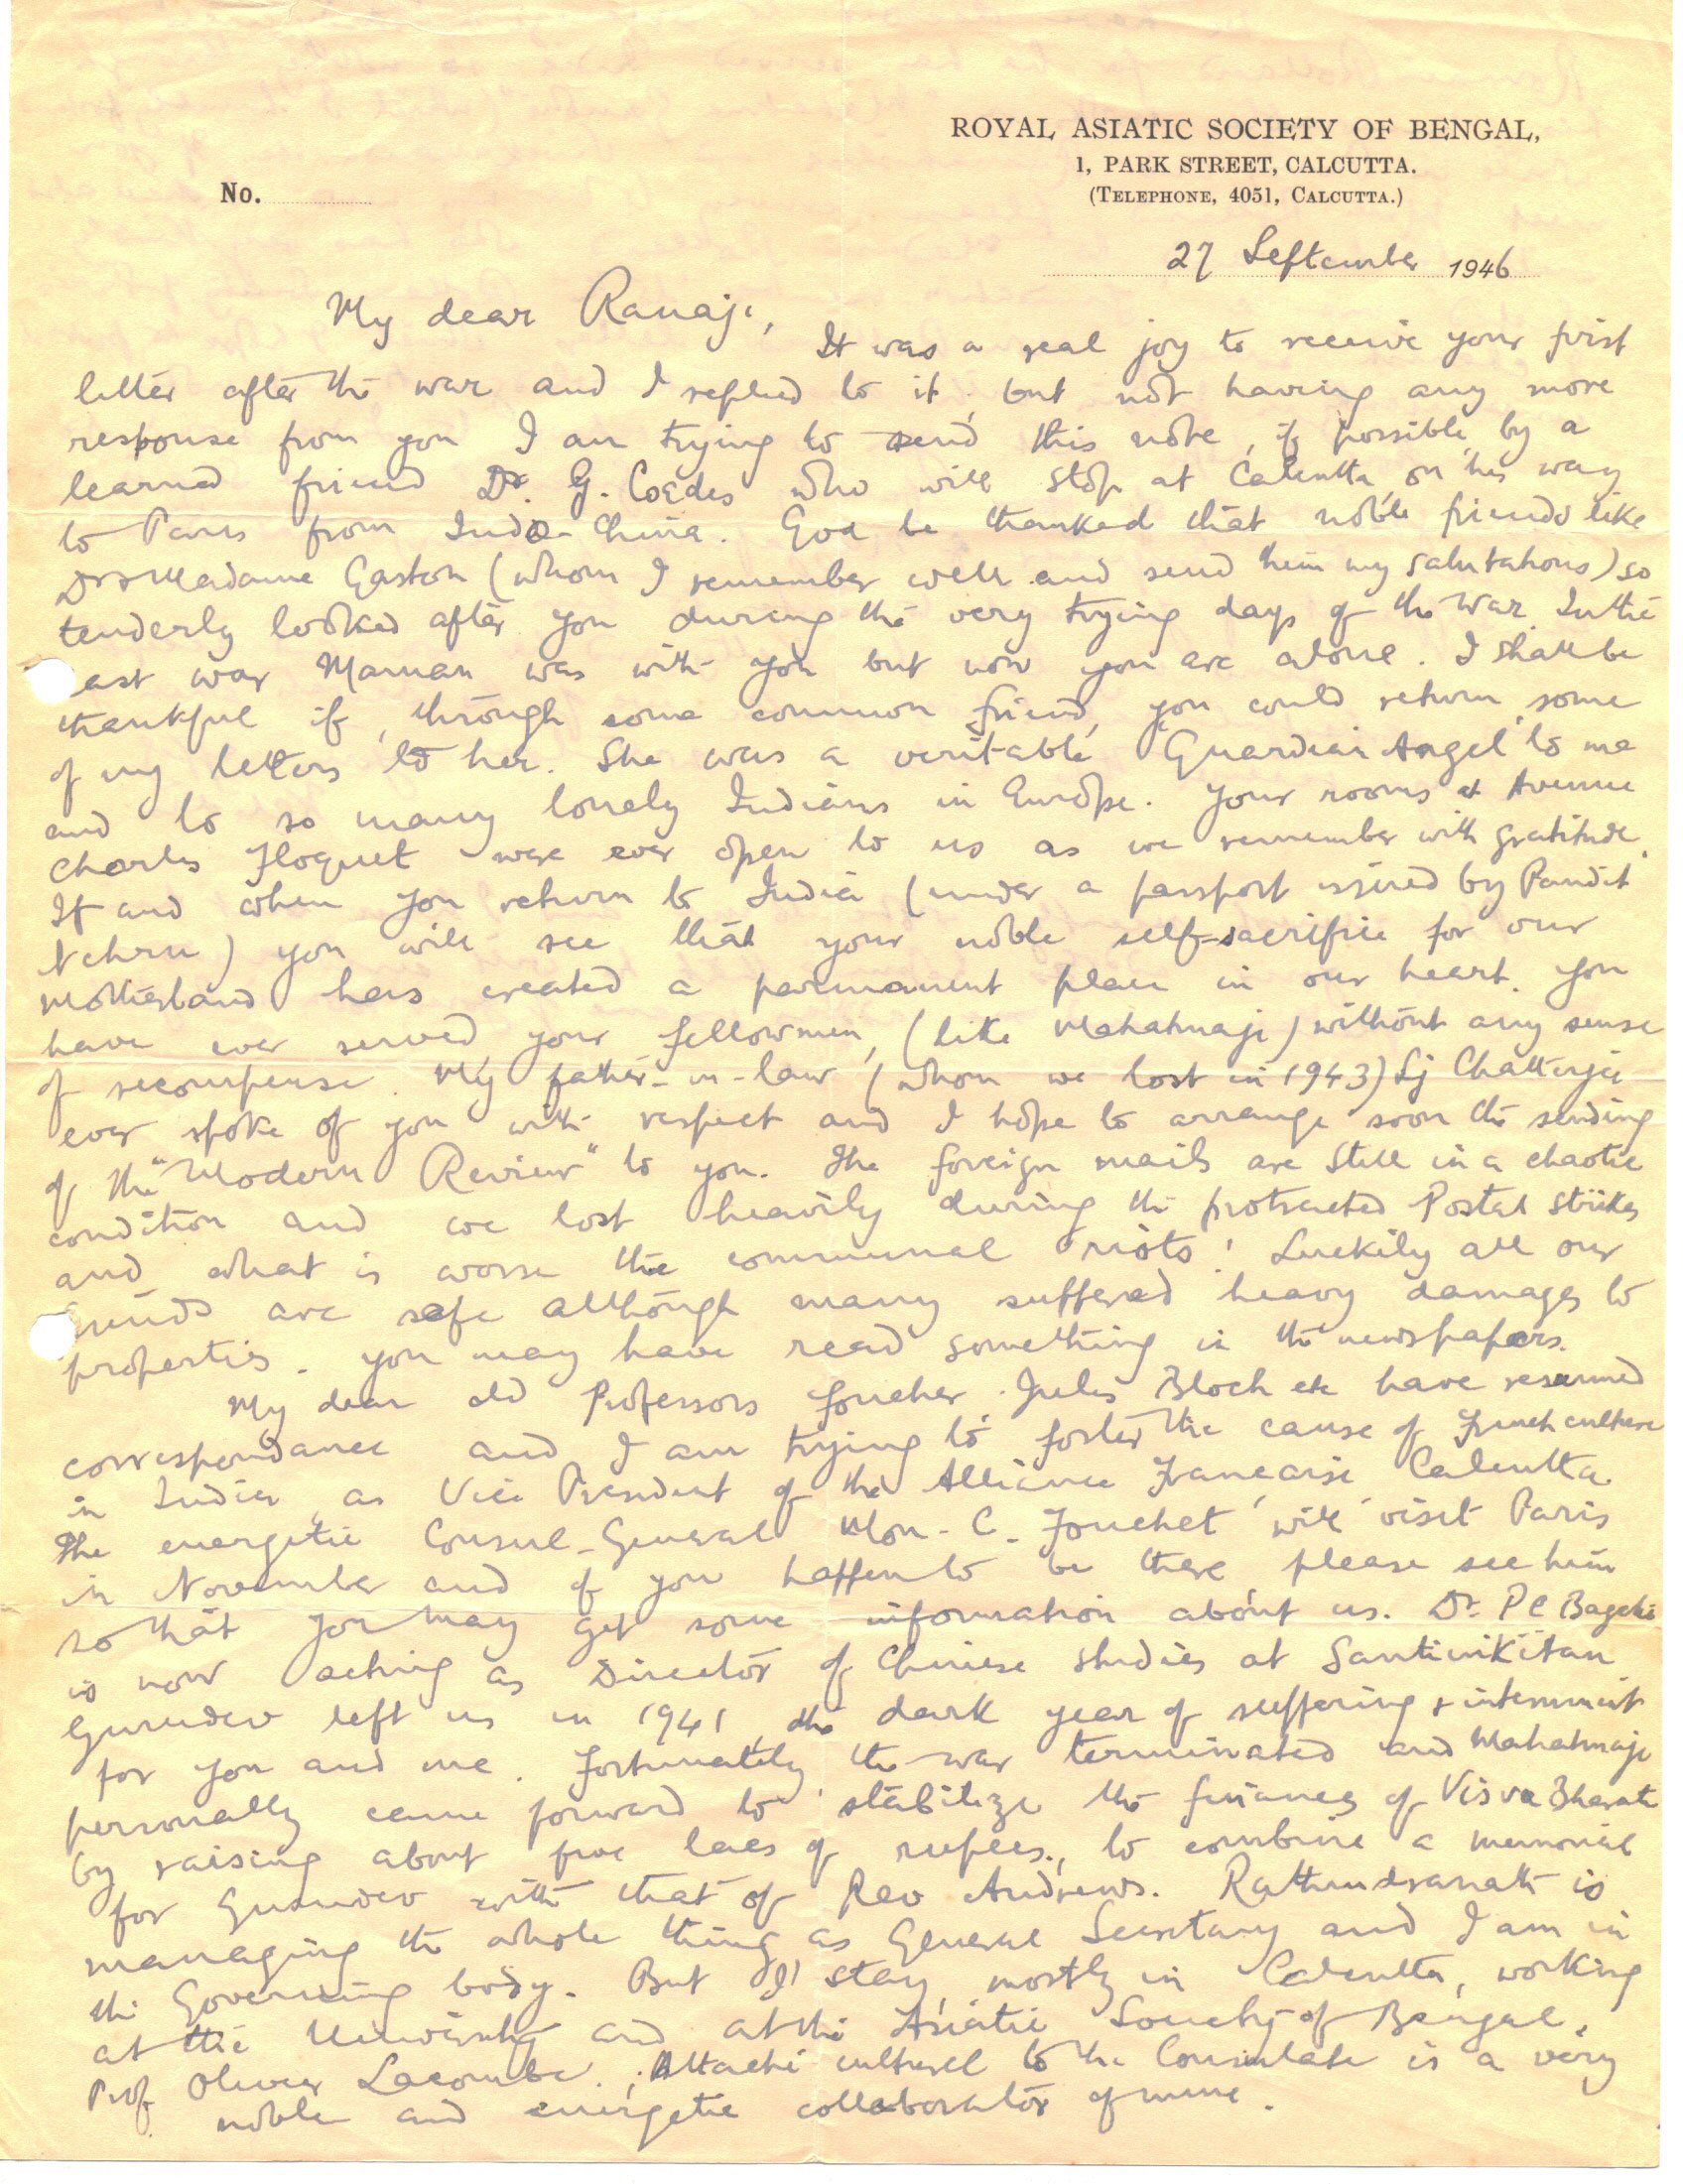 ROYAL ASIATIC SOCIETY OF BENGAL,
1, PARK STREET, CALCUTTA.
(TELEPHONE, 4051, CALCUTTA.)
No.
27 September 1946
My dear Ranaji,
It was a real joy to receive your first
letter after the war and I replied to it, but not having any more
response from you I am trying to send this note, if possible, by a
learned friend Dr. G. Coedes who will stop at Calcutta, on his way
to Paris from Indo-China. God be thanked that noble friends like
Dr & Madame Gaston (whom I remember well and send them my salutations) so
tenderly looked after you during the very trying days of the War. In the
ast war Maman was with you but now you are alone. I shall be
thankful if, through some common friend, you could return some
of my letters to her. She was a veritable "Guardian Angel" to me
and to so many lonely Indians in Europe. Your rooms at Avenue
Charles Floquet were ever open to us as we remember with gratitude.
If and when you return to India (under a passport issued by Pandit
Nehru) you will see that your noble self-sacrifice for our
Motherland has created a permanent place in our heart. You
have ever served your fellowmen, (like Mahatmaji) without any sense
of recompense. My father-in-law (whom we lost in 1943) Sj Chatterjee
ever spoke of you with respect and I hope to arrange soon the sending
of the "Modern Review" to you. The foreign mails are still in a chaotic
condition and we lost heavily during the protracted Postal strikes
and what is worse the communal riots! Luckily all our
friends are safe although many suffered heavy damages to
properties. You may have read something in the newspapers.
My dear old Professors Foucher, Jules Bloch etc have resumed
correspondance and I am trying to foster the cause of French culture
in India, as Vice President of the Alliance Francaise, Calcutta.
The energetic Consul-General Mon. C. Fouchet will visit Paris
in November and if you happen to be there please see him
so that you may get some information about us. Dr. P C Bagchi
is now acting as Director of Chinese studies at Santiniketan
Gurudev left us in 1941, the dark year of suffering & internment
for you and me. Fortunately, the war terminated and Mahatmaji
personally came forward to stabilize the finances of Visva Bharati
by raising about five lacs of rupees, to combine a memorial
for Gurudev with that of Rev Andrews. Rathindranath is
managing the whole thing as General Secretary and I am in
the Governing body. But I stay, mostly in Calcutta, working
at the University and at the Asiatic Society of Bengal.
Prof. Olivier Lacombe, Attaché culturel to the Consulate is a very
noble and energetic collaborator of mine.